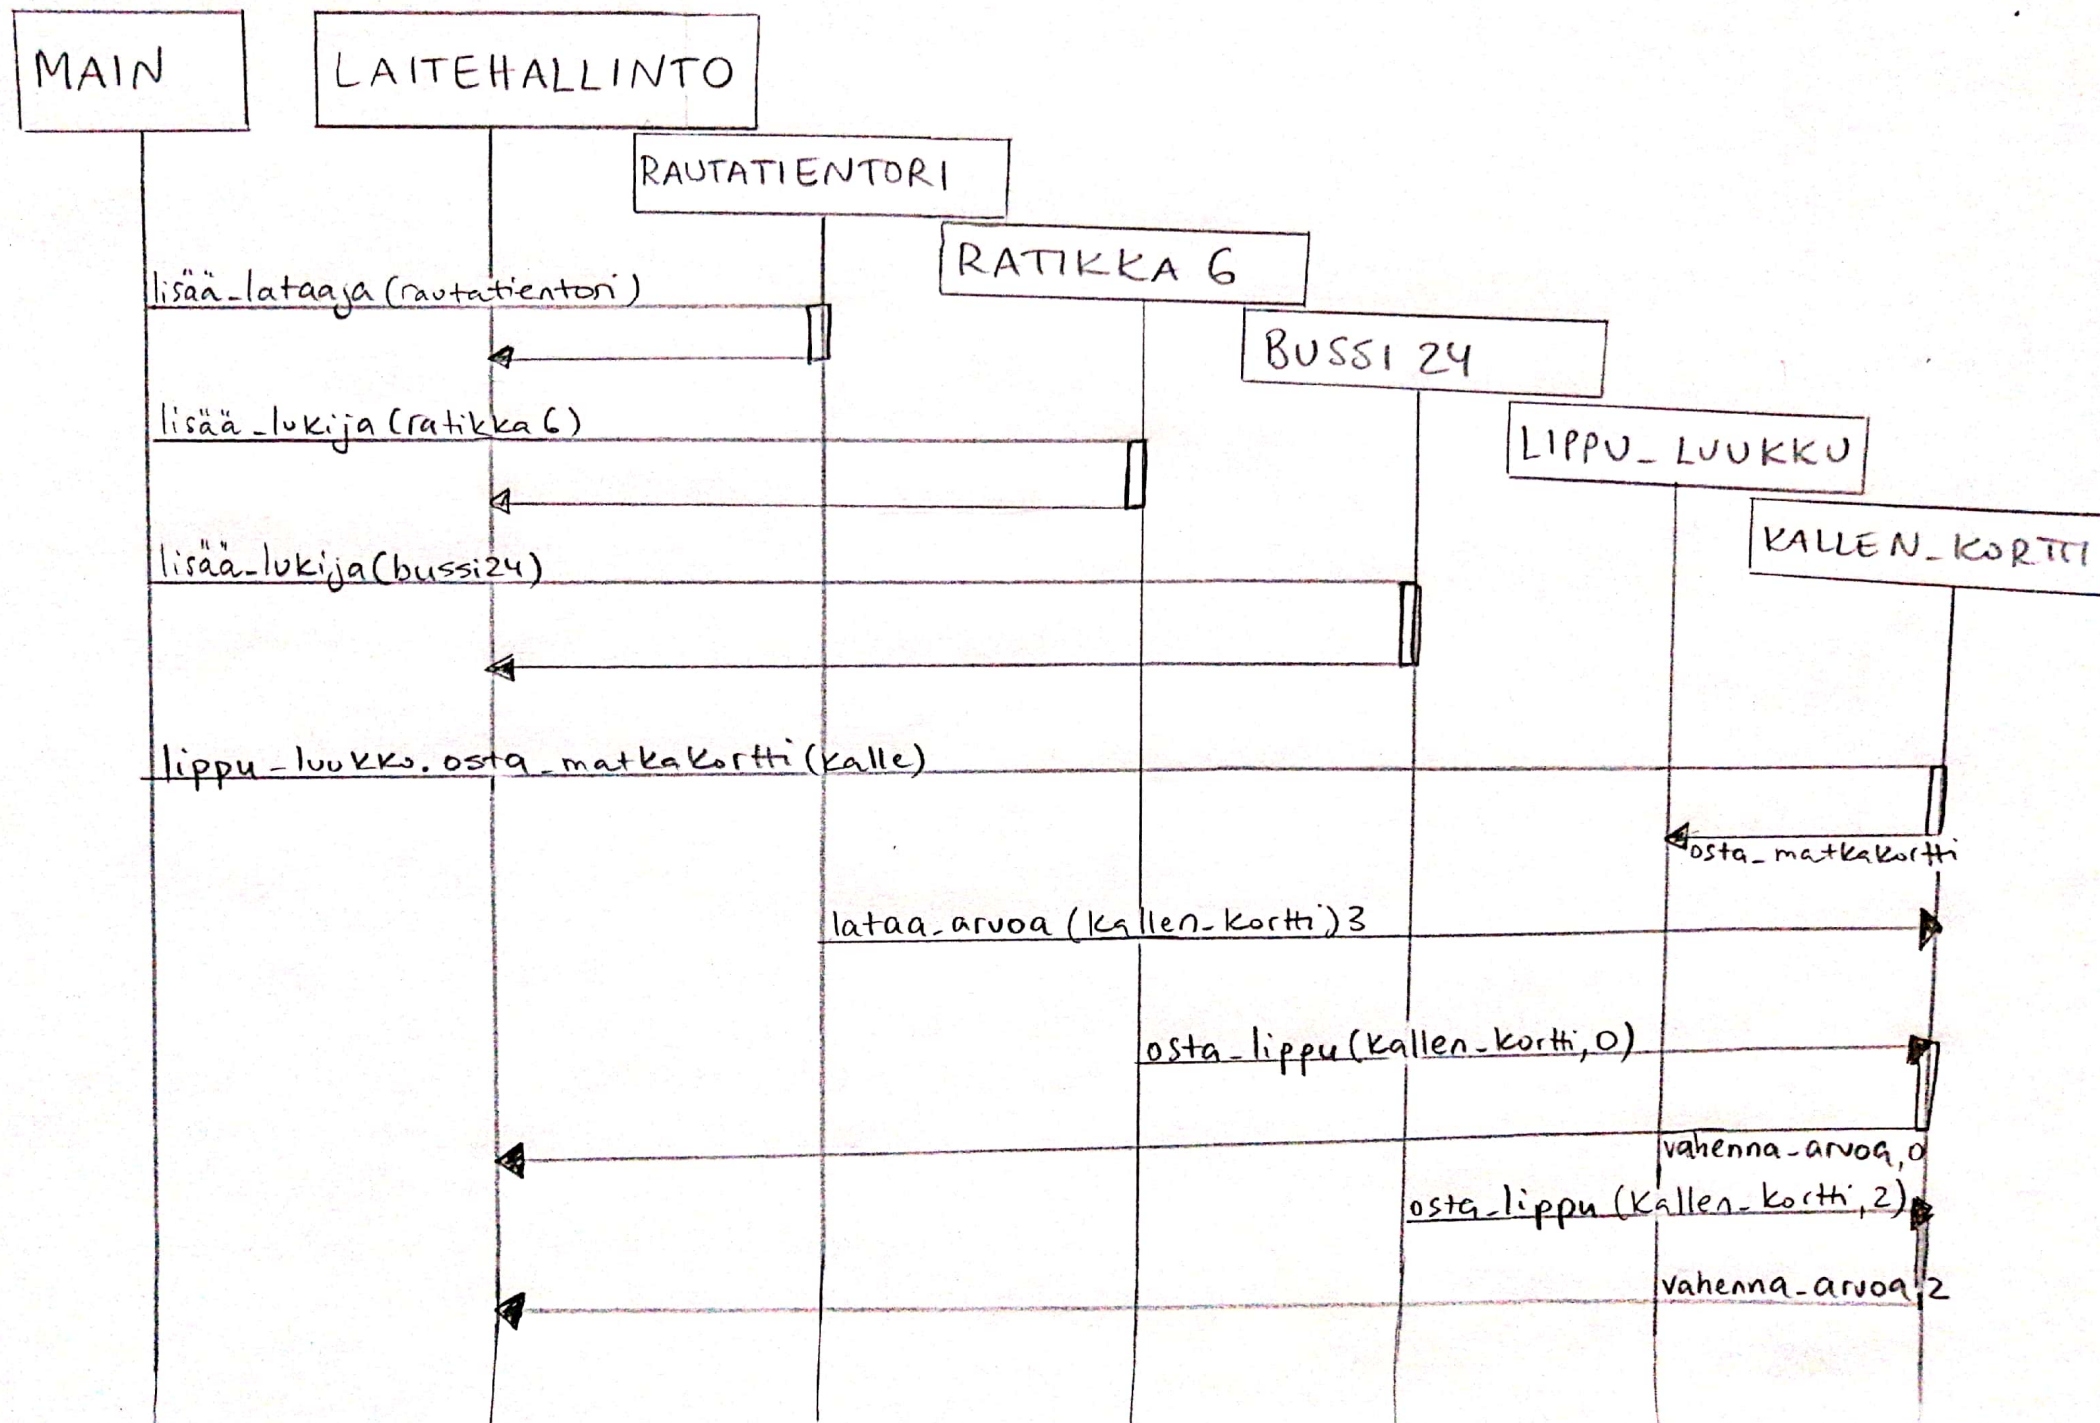 MAIN
LAITEHALLINTO
RAUTATIENTORI
RATIKKA 6
BUSSI 24
LIPPU_LUUKKU
KALLEN_KORTTI
lisää_lataaja(rautatientori)
lisää_lukija(ratikka6)
lisää_lukija(bussi24)
lippu_luukku.osta_matkakortti(kalle)
osta_matkakortti
lataa_arvoa(kallen_kortti)3
osta_lippu(kallen_kortti,0)
vahenna_arvoa,0
osta_lippu(kallen_kortti,2)
vahenna_arvoa,2